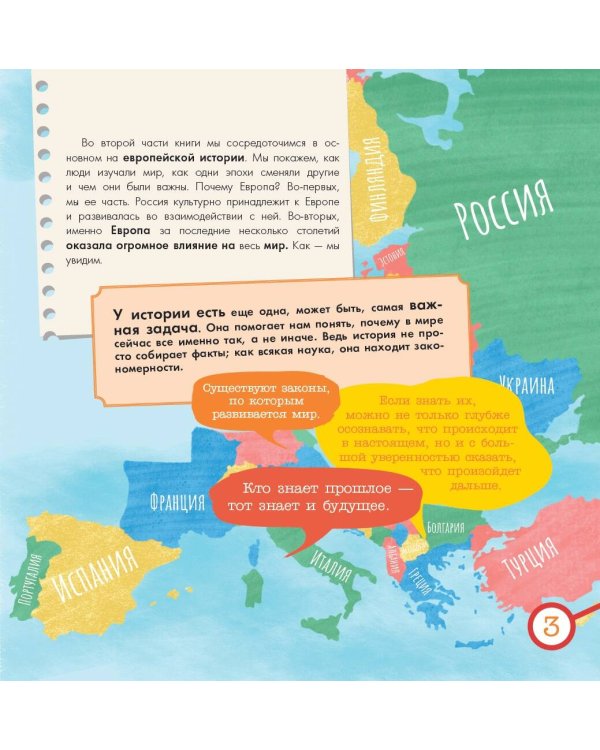 Во второй части книги мы сосредоточимся в ос-
новном на европейской истории. Мы покажем, как
люди изучали мир, как одни эпохи сменяли другие
и чем они были важны. Почему Европа? Во-первых,
мы ее часть. Россия культурно принадлежит к Европе
и развивалась во взаимодействии с ней. Во-вторых,
именно Европа за последние несколько столетий
оказала огромное влияние на весь мир. Как — мы
увидим.
ФИНЛЯНДИЯ
РОССИЯ
ЭСТОНИЯ
У истории есть еще одна, может быть, самая важ-
ная задача. Она помогает нам понять, почему в мире
сейчас все именно так, а не иначе. Ведь история не про-
сто собирает факты; как всякая наука, она находит зако-
номерности.
Существуют законы,
по которым
развивается мир.
Если знать их,
можно не только глубже
осознавать, что происходит
в настоящем, но и с боль-
шой уверенностью сказать,
что произойдет
дальше.
УКРАИНА
Кто знает прошлое —
тот знает и будущее.
ФРАНЦИЯ
БОЛГАРИЯ
ИСПАНИЯ
ПОРТУГАЛИЯ
ИТАЛИЯ
АЛБАНИЯ
ГРЕЦИЯ
ТУРЦИЯ
3